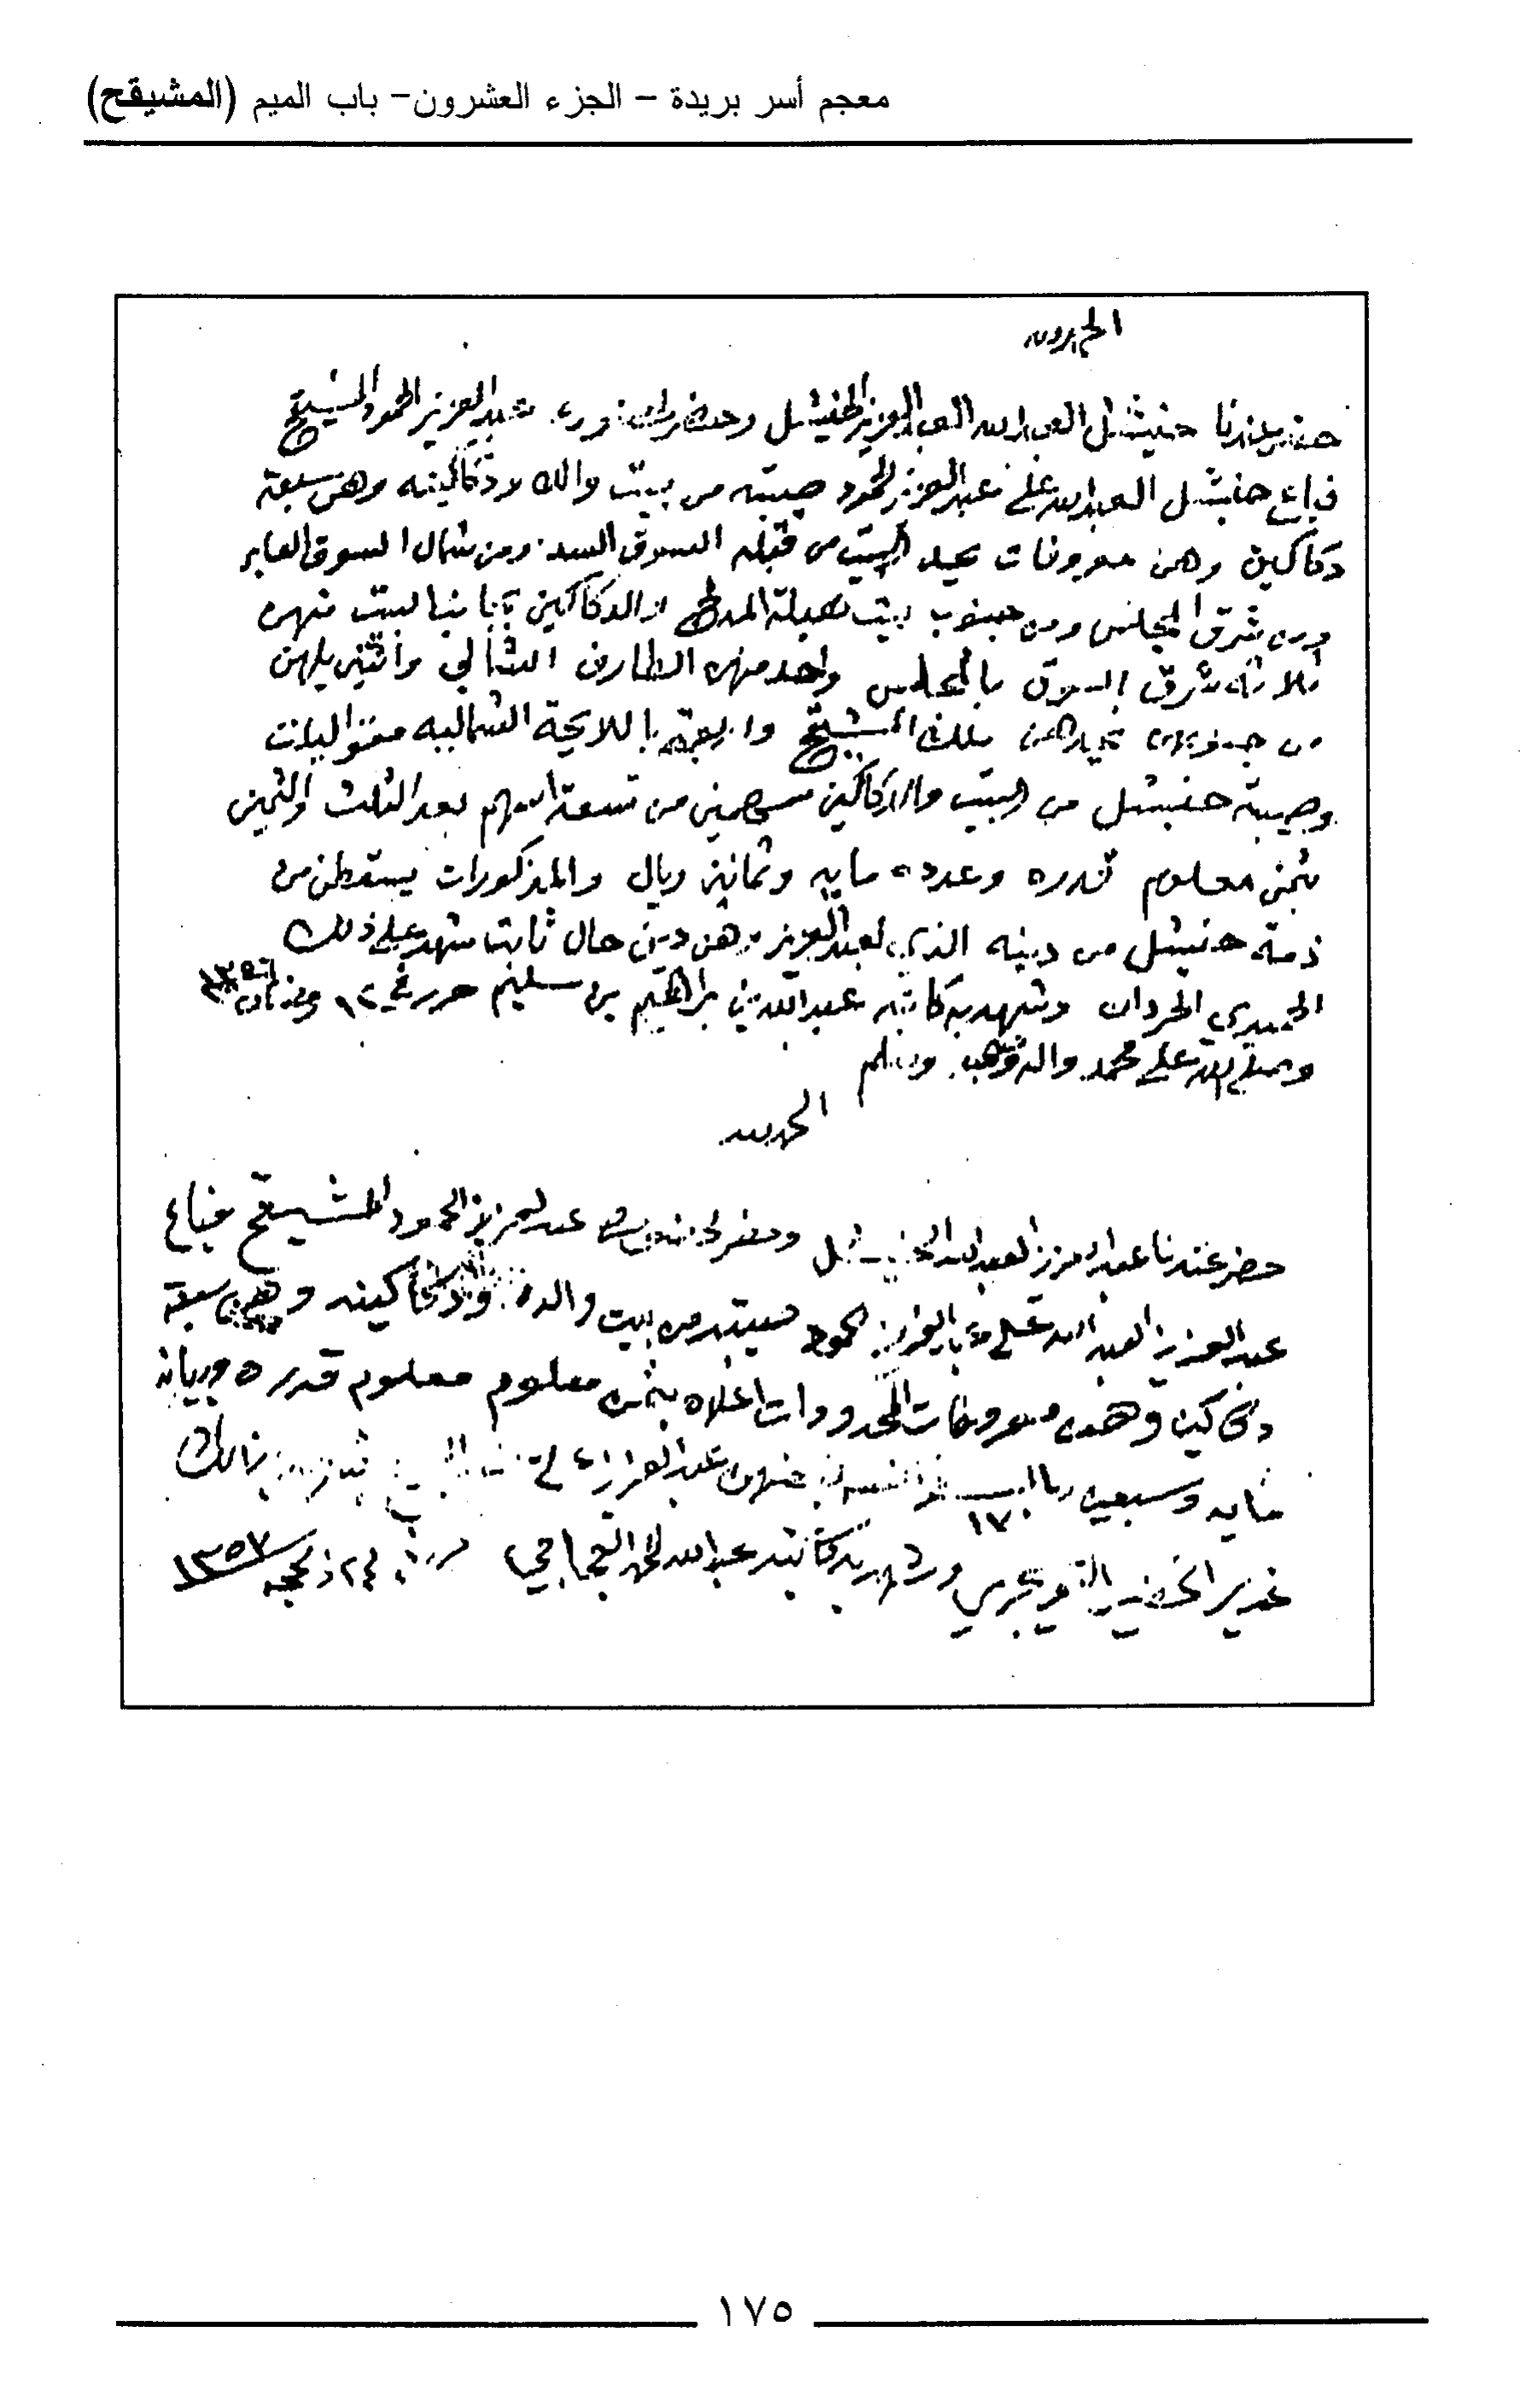 معجم أسر بريدة – الجزء العشرون– باب الميم (المشيقح)
الحمد لله
حضر عندنا حنيشل العبدالله العبدالعزيز الحنيشل وحضر لحضوره عبدالعزيز الحمود المشيقح
فباع حنيشل العبدالله على عبدالعزيز الحمود صيبته من بيت والده ودكاكينه وهن سبعة
دكاكين وهن معروفات يحد البيت من قبله السوق السد ومن شمال السوق العابر
ومن شرق المجلس ومن جنوب بيت والدكاكين منهن
ثلاثة شرق السوق بالمجلس واحد منهن الطارف الشمالي واثنين يلهن
من جنوب يحدهن ملك المشيقح واربعة الشماليه
وصيبة حنيشل من البيت والدكاكين سهمين من تسعة اسهم بعد الثلث والثمين
بثمن معلوم قدره وعدده مايه وثمانين ريال والمذكورات يسقطن من
ذمة حنيشل من دينه الذي لعبدالعزيز وهن دين حال ثابت شهد على ذلك
الحميدي الحردان وشهد به كاتبه عبدالله بن ابراهيم بن سليم حرر في ١٣٥٦
وصلى الله على محمد واله وصحبه وسلم
الحمد لله
حضر عندنا عبدالعزيز العبدالله الحنيشل وحضر لحضوره عبدالعزيز الحمود المشيقح فباع
عبدالعزيز العبدالله على عبدالعزيز الحمود صيبته من بيت والده ودكاكينه وهن سبعة
دكاكين وهن معروفات المحدودات اعلاه بثمن معلوم معلوم قدره
مايه وسبعين ريال ١٧٠ عبدالعزيز
الخضير وشهد به كاتبه عبدالله المحمد العجاجي ٢٤ ذ لحجه ١٣٥٧
١٧٥